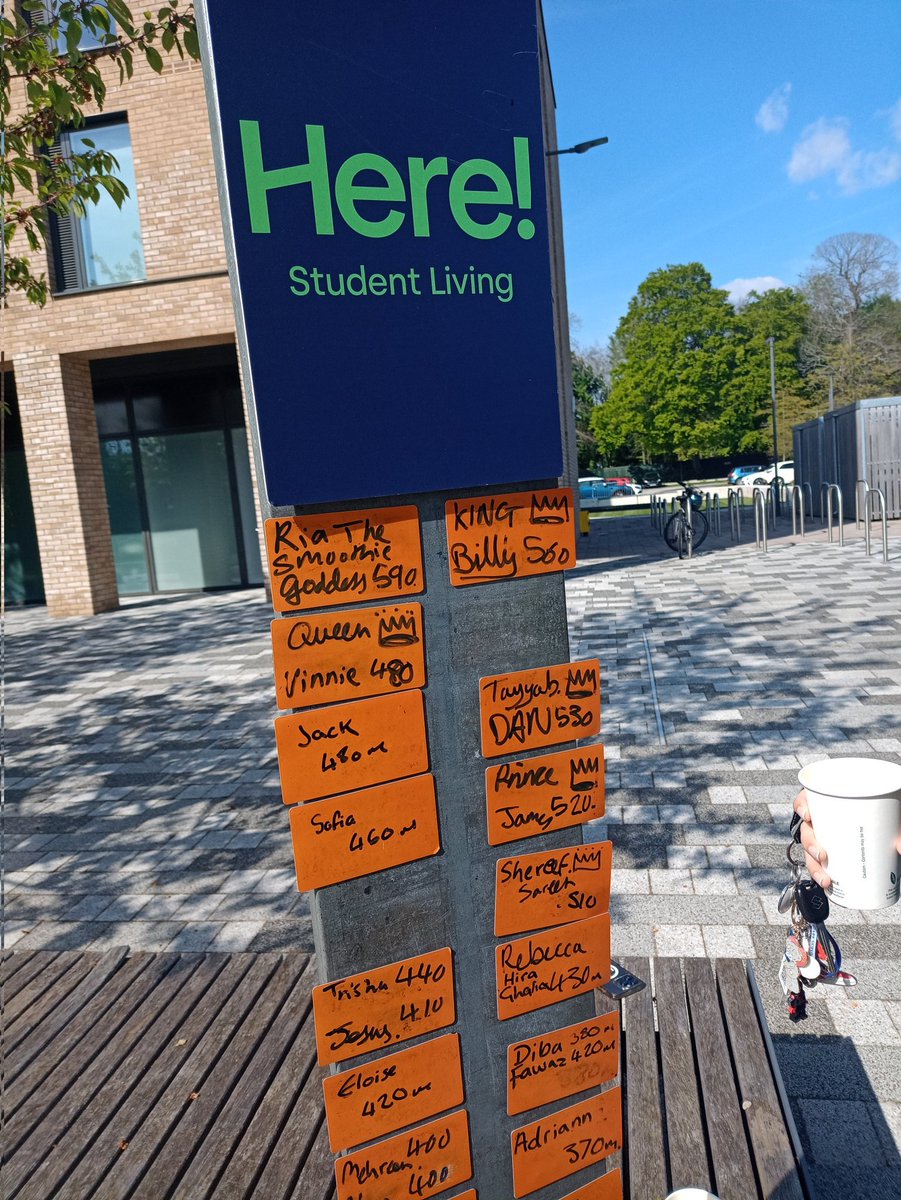 Here!
Student Living
Ria The
Smoothie
Goddess 590
Queen
Vinnie 480
Jack
480m
Sofia
460m
Trisha 440
Jesus. 410
Eloise
420m
Mehran 400
400
KING
Billy 560
Tayyab.
DAN 530
Prince
James, 520.
Sheraf.
Sarah
510
Rebecca
Hira
Ghalia 430m
Diba 380m
Fawaz 420m
Adriann
370m.